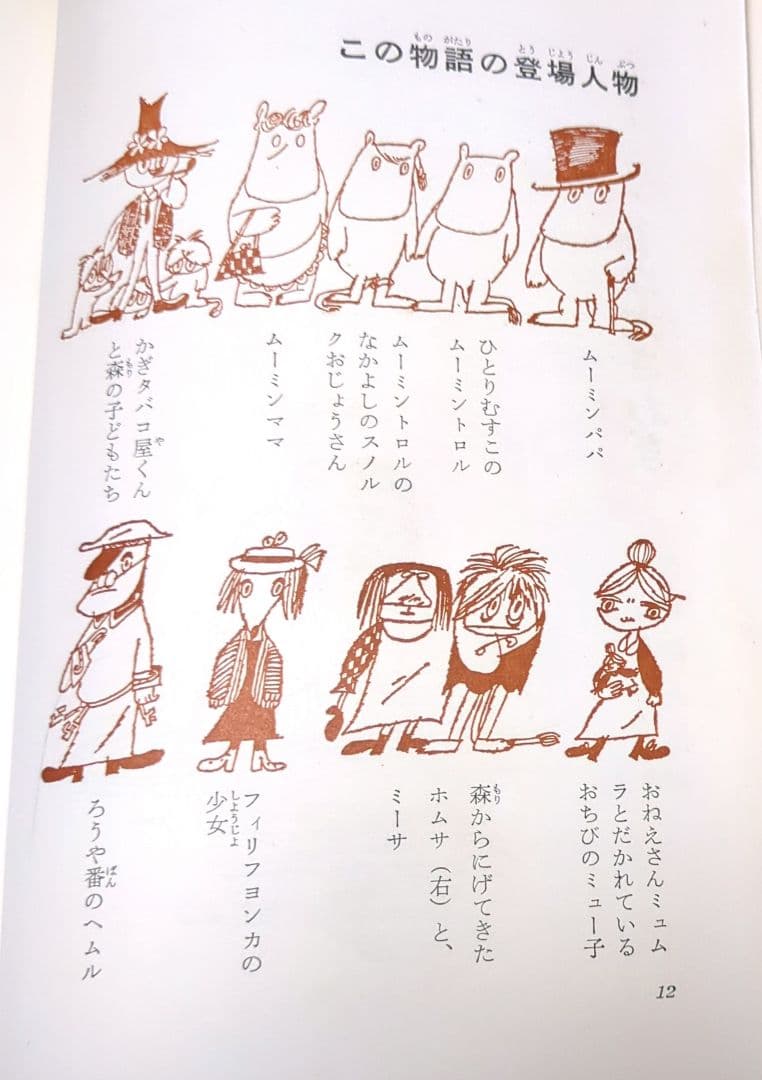 この物語の登場人物
もの がたり とう じょう じん ぶつ
ムーミンパパ
ひとりむすこの
ムーミントロル
ムーミントロルの
なかよしのスノル
クおじょうさん
ムーミンママ
かぎタバコ屋くん
や
と森の子どもたち
もり
おねえさんミュム
ラとだかれている
おちびのミュー子
森からにげてきた
もり
ホムサ（右）と、
ミーサ
フィリフヨンカの
少女
しょうじょ
ろうや番のヘムル
ばん
12